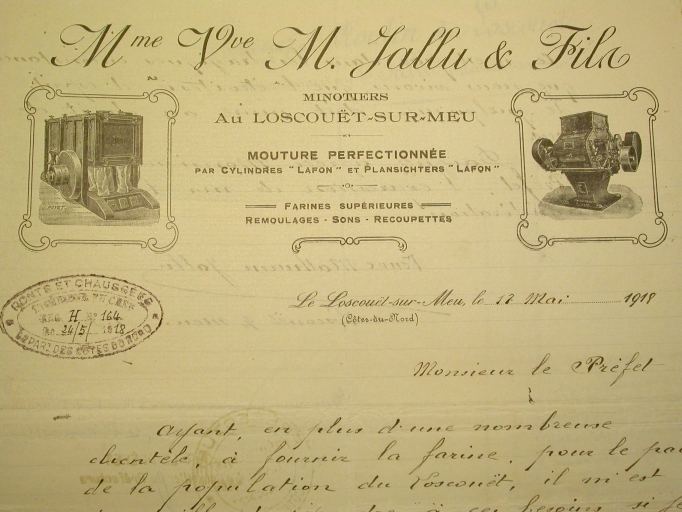 Mme Vve M. Jallu & Fils
MINOTIERS
AU LOSCOUËT-SUR-MEU
MOUTURE PERFECTIONNÉE
PAR CYLINDRES "LAFON" ET PLANSICHTERS "LAFON"
FARINES SUPÉRIEURES
REMOULAGES - SONS - RECOUPETTES
PONTS ET CHAUSSÉES
REG. H N° 164
No. 24/5/ 1918
DÉPART. DES CÔTES DU NORD
Le Loscouët-sur-Meu, le 17 Mai 1918
(Côtes-du-Nord)
Monsieur le Préfet
Ayant, en plus d'une nombreuse
clientèle, à fournir la farine, pour le pai
de la population du Loscouët, il m'est